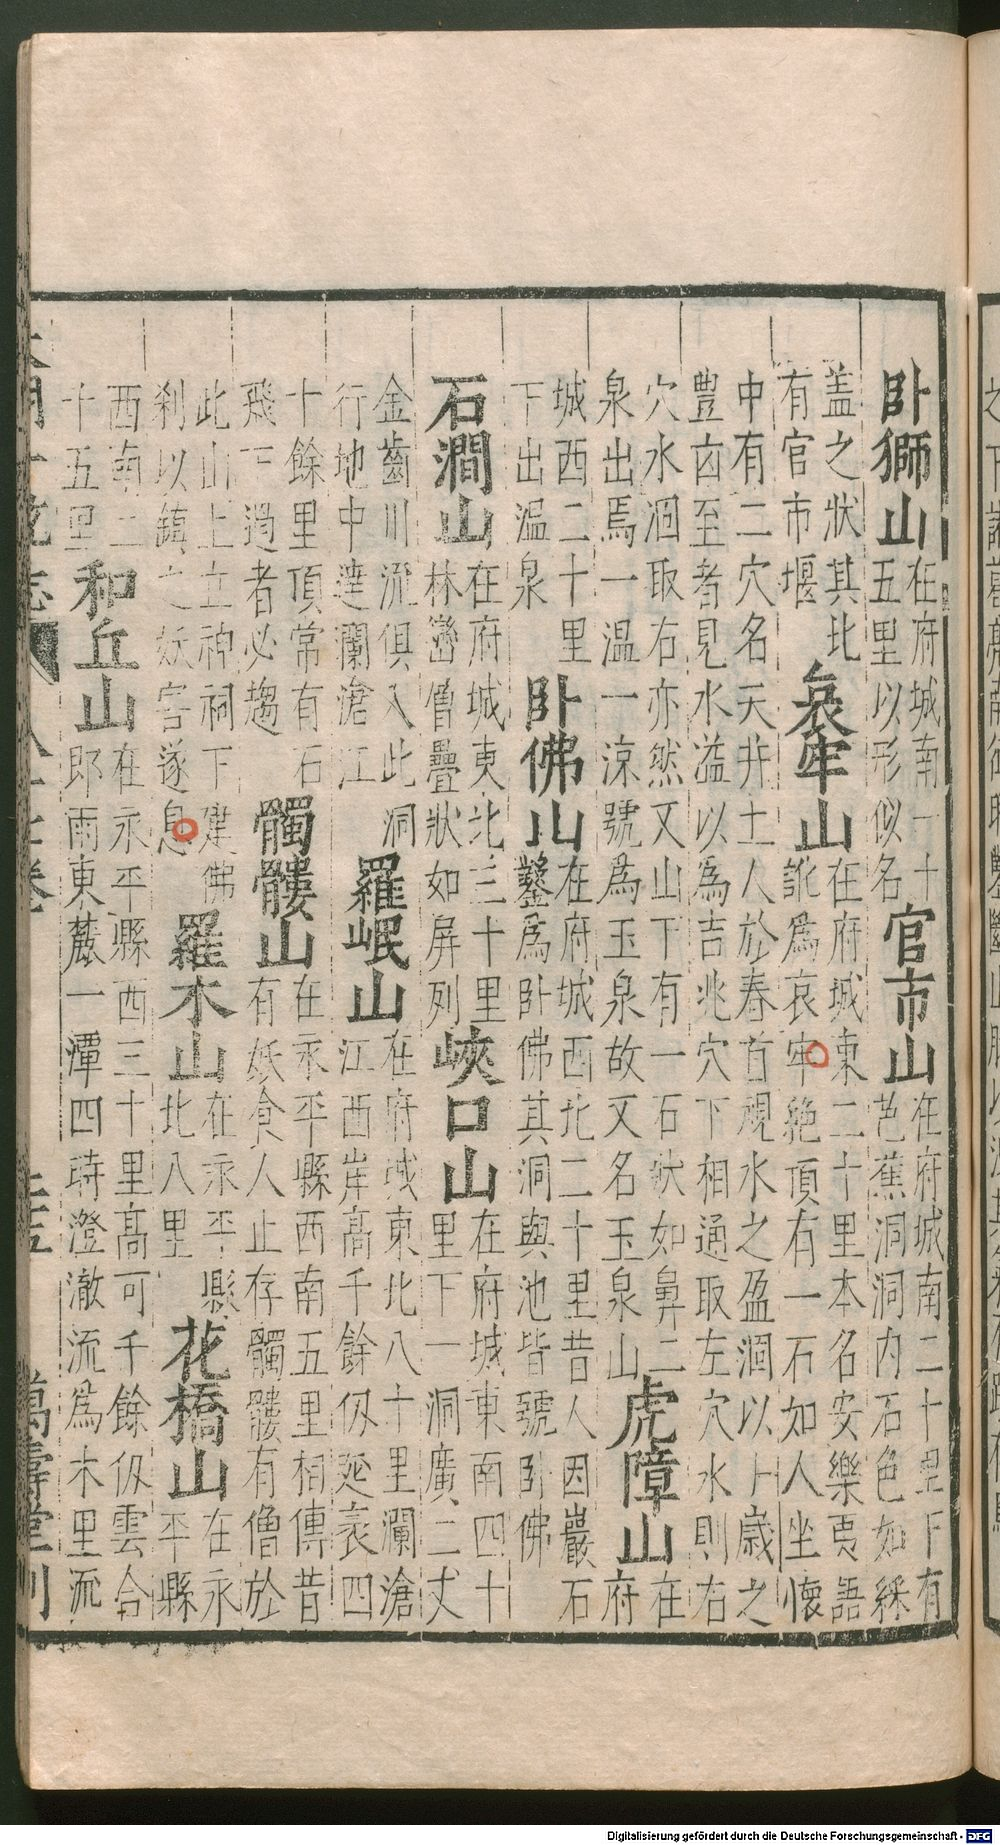 卧獅山
在府城南一十
五里以形似名
官市山
在府城南二十里下有
芭蕉洞洞内石色如綵
盖之狀其北
有官市堰
哀牢山
在府城東二十里本名安樂夷語
訛爲哀牢絶頂有一石如人坐懷
中有二穴名天井土人於春首視水之盈涸以卜歲之
豐凶至者見水溢以爲吉兆穴下相通取左穴水則右
穴水涸取右亦然又山下有一石狀如鼻二
泉出焉一温一涼號爲玉泉故又名玉泉山
虎障山
在
府
城西二十里
下出温泉
卧佛山
在府城西北二十里昔人因巖石
鑿爲卧佛其洞與池皆號卧佛
石澗山
在府城東北三十里
林巒層疊狀如屏列
峽口山
在府城東南四十
里下一洞廣二丈
金齒川流俱入此洞
行地中達瀾滄江
羅岷山
在府城東北八十里瀾滄
江西岸高千餘仭延袤四
十餘里頂常有石
飛下過者必趨
髑髏山
在永平縣西南五里相傳昔
有妖食人止存髑髏有僧於
此山上立神祠下建佛
刹以鎮之妖害遂息
羅木山
在永平縣
北八里
花橋山
在永
平縣
西南二
十五里
和丘山
在永平縣西三十里高可千餘仭雲合
郎雨東麓一潭四時澄澈流爲木里流
萬壽堂刊
Digitalisierung gefördert durch die Deutsche Forschungsgemeinschaft - DFG